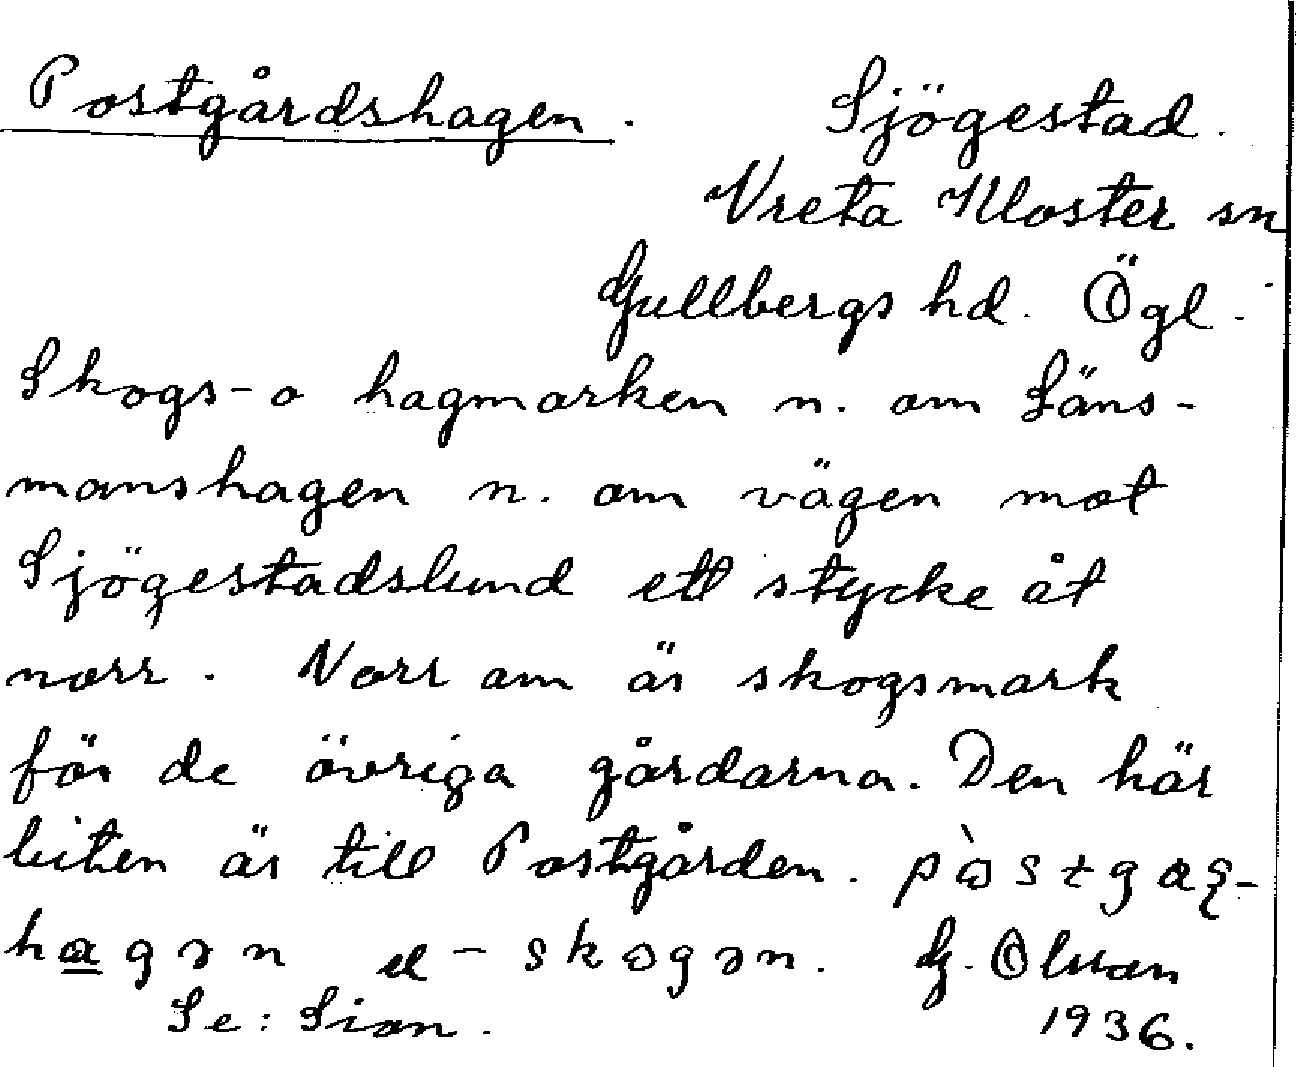 Postgårdshagen. Sjögestad.
Vreta Kloster sn
Gullbergs hd. Ögl.
Skogs- o hagmarken n. om Läns-
manshagen n. om vägen mot
Sjögestadslund ett stycke åt
norr. Norr om är skogsmark
för de övriga gårdarna. Den här
biten är till Postgården. 
hagən el - skogən. G. Olsson
Se: Sion. 1936.